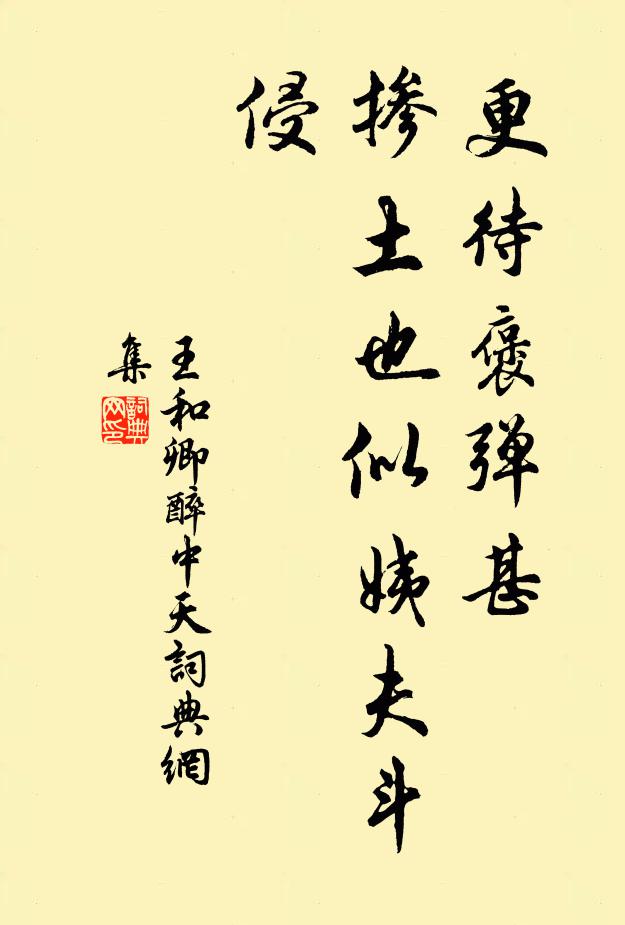 更待褒弹甚
掺土也似姨夫斗
侵
王和卿醉中天詞典網
集
詞典
网印